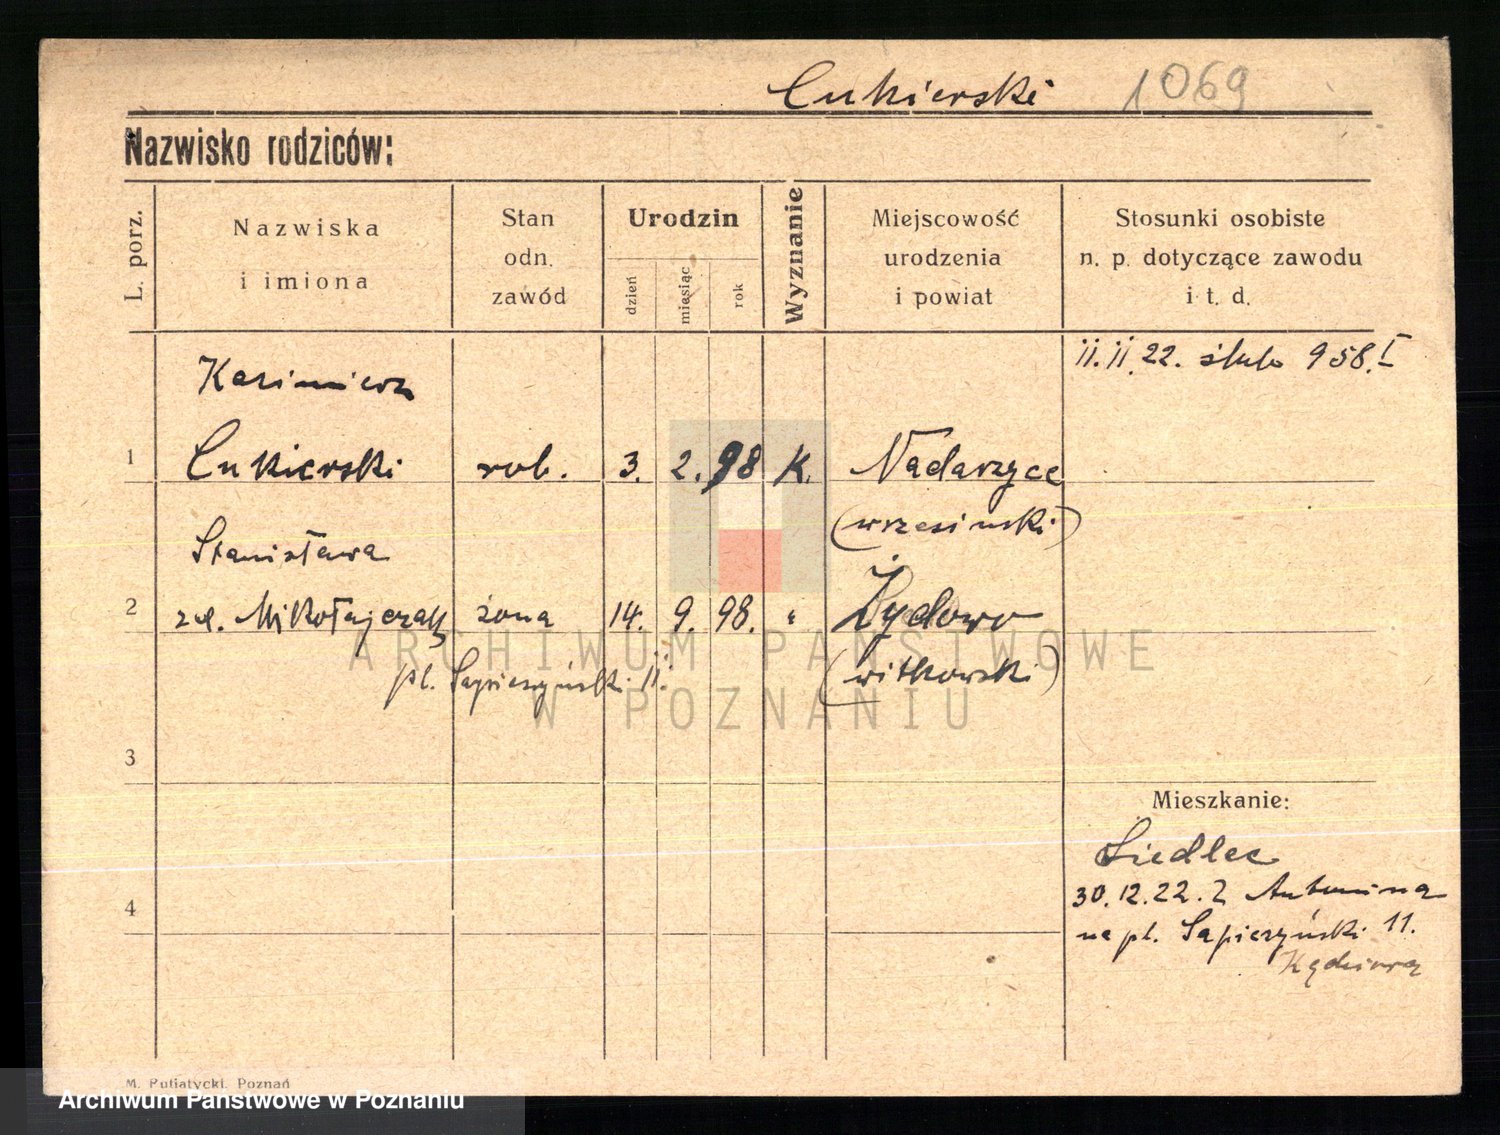 Cukierski 1069
Nazwisko rodziców:
L. porz.
Nazwiska
i imiona
Stan
odn.
zawód
Urodzin
dzień
miesiąc
rok
Wyznanie
Miejscowość
urodzenia
i powiat
Stosunki osobiste
n. p. dotyczące zawodu
i t. d.
11.11.22. ślub 958.I
Kazimierz
1 Cukierski rob. 3. 2. 98 K. Nadarzyce
(wrzesiński)
Stanisława
2 zd. Mikołajczak żona 14. 9. 98. " Żydowo
(witkowski)
pl. Sapieżyński 11.
3
Mieszkanie:
Siedlec
30.12.22. z Antonina
4
na pl. Sapieżyński 11.
M. Putiatycki, Poznań
ARCHIWUM PAŃSTWOWE
W POZNANIU
Archiwum Państwowe w Poznaniu